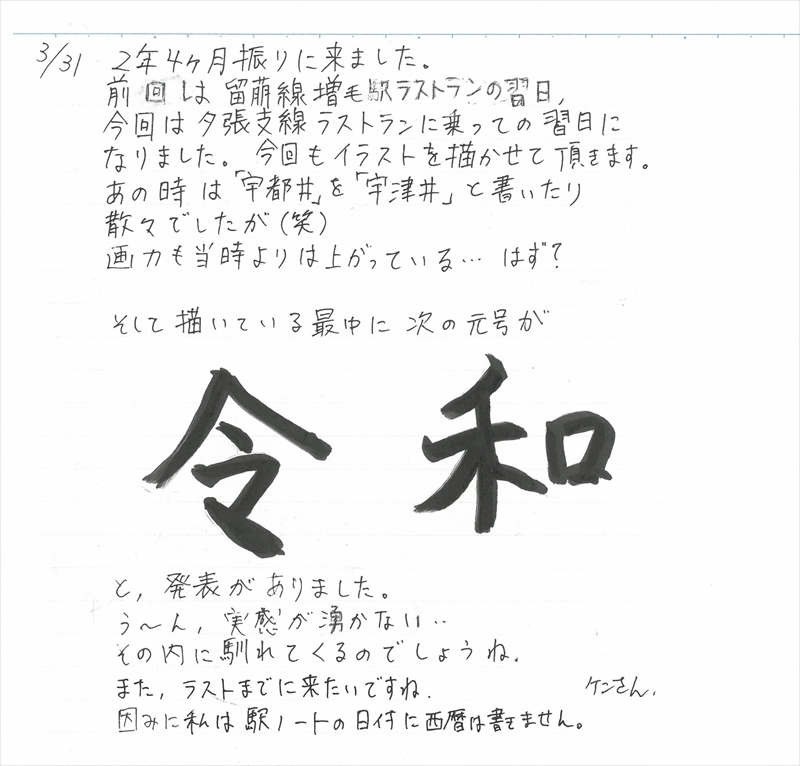 3/31 2年4ヶ月振りに来ました。
前回は留萌線増毛駅ラストランの習日,
今回は夕張支線ラストランに乗っての習日に
なりました。今回もイラストを描かせて頂きます。
あの時は「宇都井」を「宇津井」と書いたり
散々でしたが(笑)
画力も当時よりは上がっている… はず?
そして描いている最中に次の元号が
令和
と,発表がありました。
う〜ん,実感が湧かない‥
その内に馴れてくるのでしょうね.
また,ラストまでに来たいですね.
ケンさん.
因みに私は駅ノートの日付に西暦は書きません。